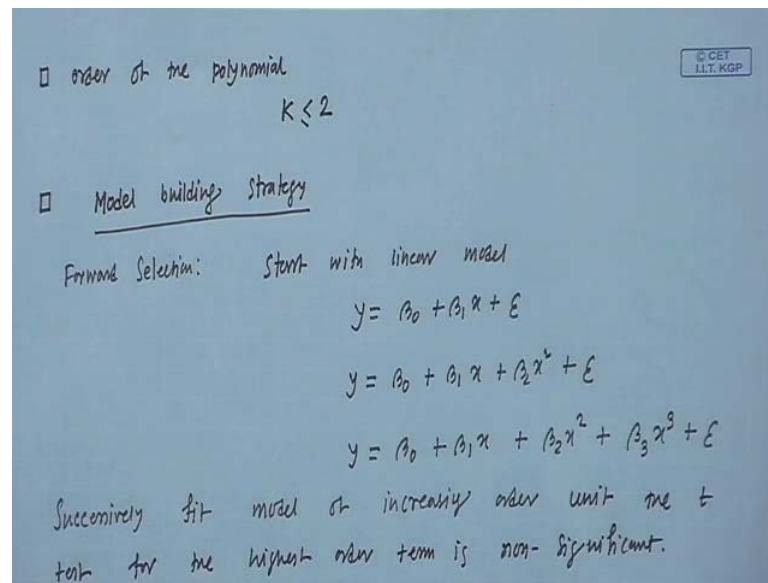 □ order of the polynomial
© CET
I.I.T. KGP
K ≤ 2
□ Model building Strategy
Forward Selection: Start with linear model
y = β₀ + β₁x + ε
y = β₀ + β₁x + β₂x² + ε
y = β₀ + β₁x + β₂x² + β₃x³ + ε
Successively fit model of increasing order unit the t
test for the highest order term is non-significant.